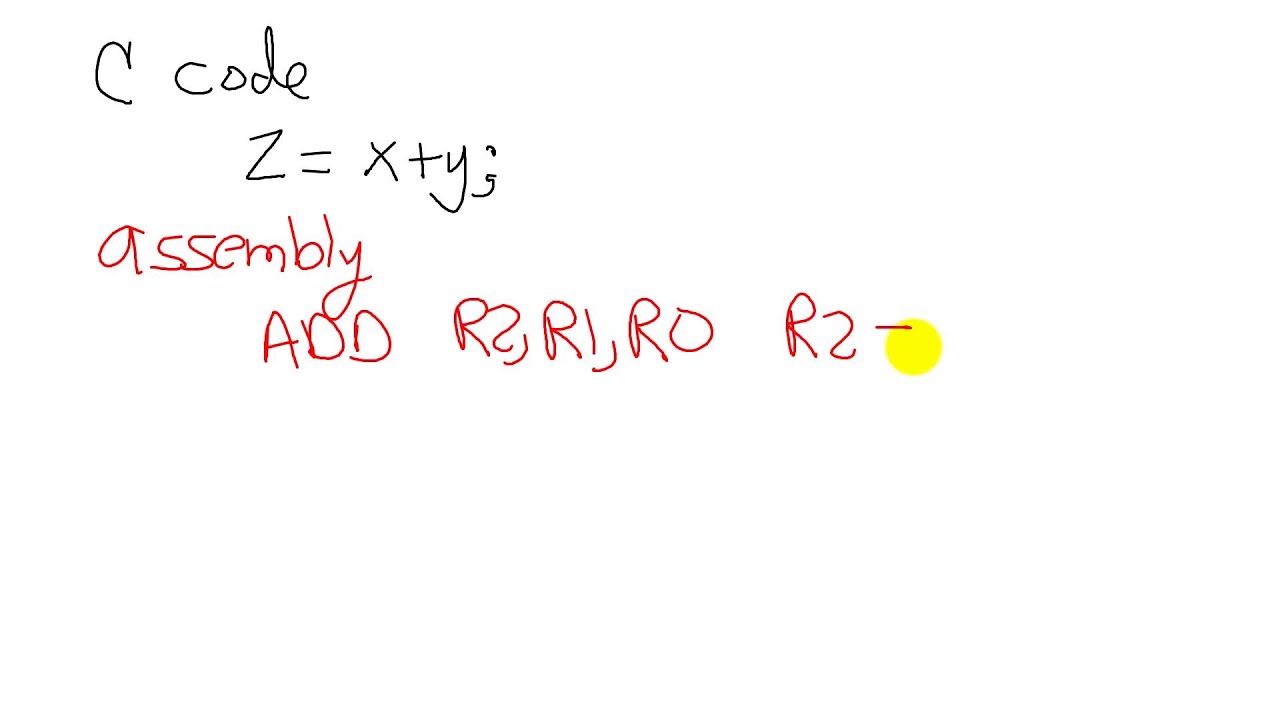 C code
Z = x+y;
assembly
ADD R2, R1, R0 R2 -